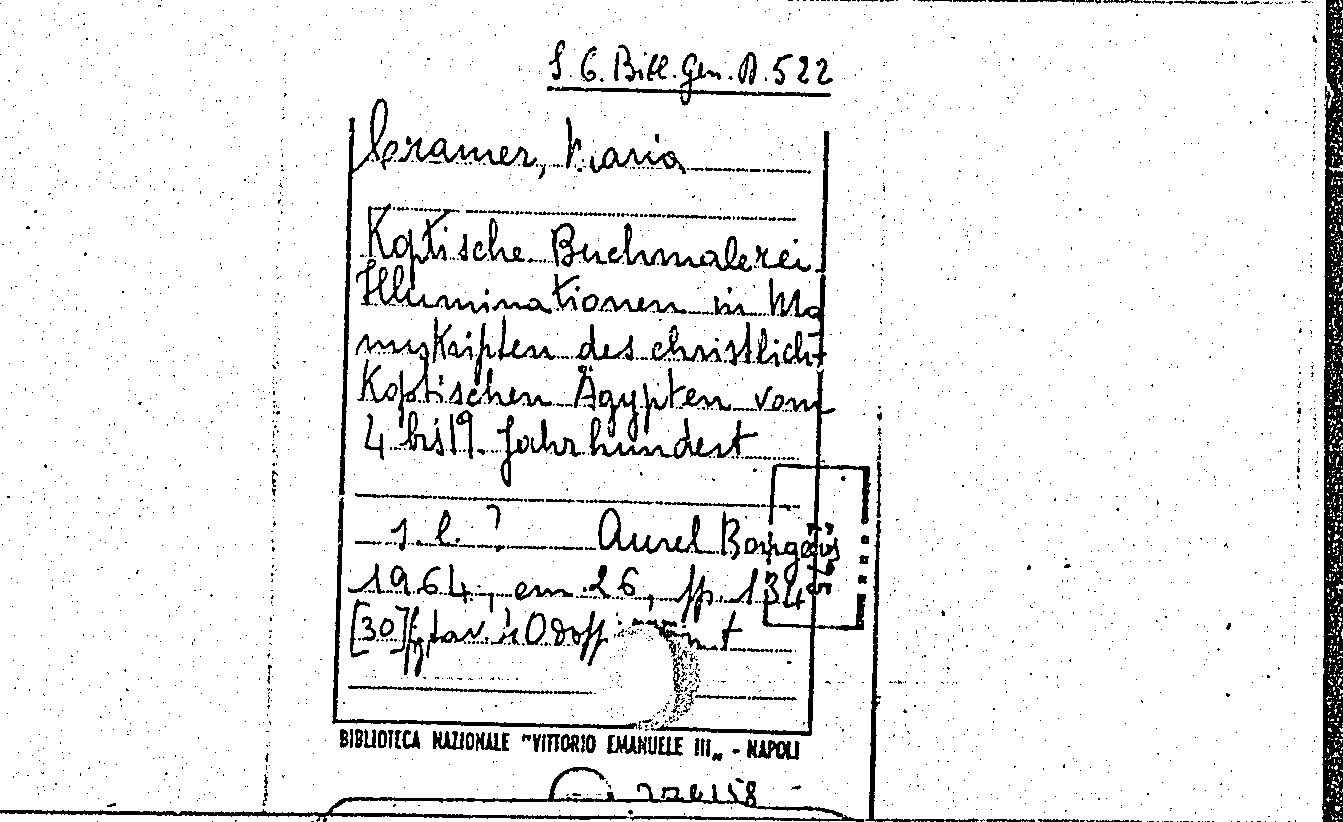 S. G. Bibl. Gen. B. 522
Cramer, Maria
Koptische Buchmalerei.
Illuminationen in Ma
nuskripten des christlich-
Koptischen Ägypten vom
4 bis 19. Jahrhundert
s. l. ? Aurel Bongers
1964, cm. 26, pp. 134
[30] tav.
BIBLIOTECA NAZIONALE "VITTORIO EMANUELE III„ - NAPOLI